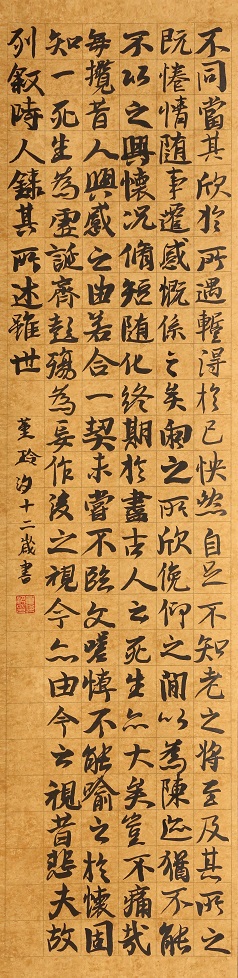 不同當其欣於所遇蹔得於己怏然自足不知老之將至及其所之
既惓情随事遷感慨係之矣向之所欣俛仰之閒以為陳迹猶不能
不以之興懷況脩短随化終期於盡古人云死生亦大矣豈不痛哉
每攬昔人興感之由若合一契未嘗不臨文嗟悼不能喻之於懷固
知一死生為虛誕齊彭殤為妄作後之視今亦由今之視昔悲夫故
列敘時人錄其所述雖世
董玲汐十二歲書